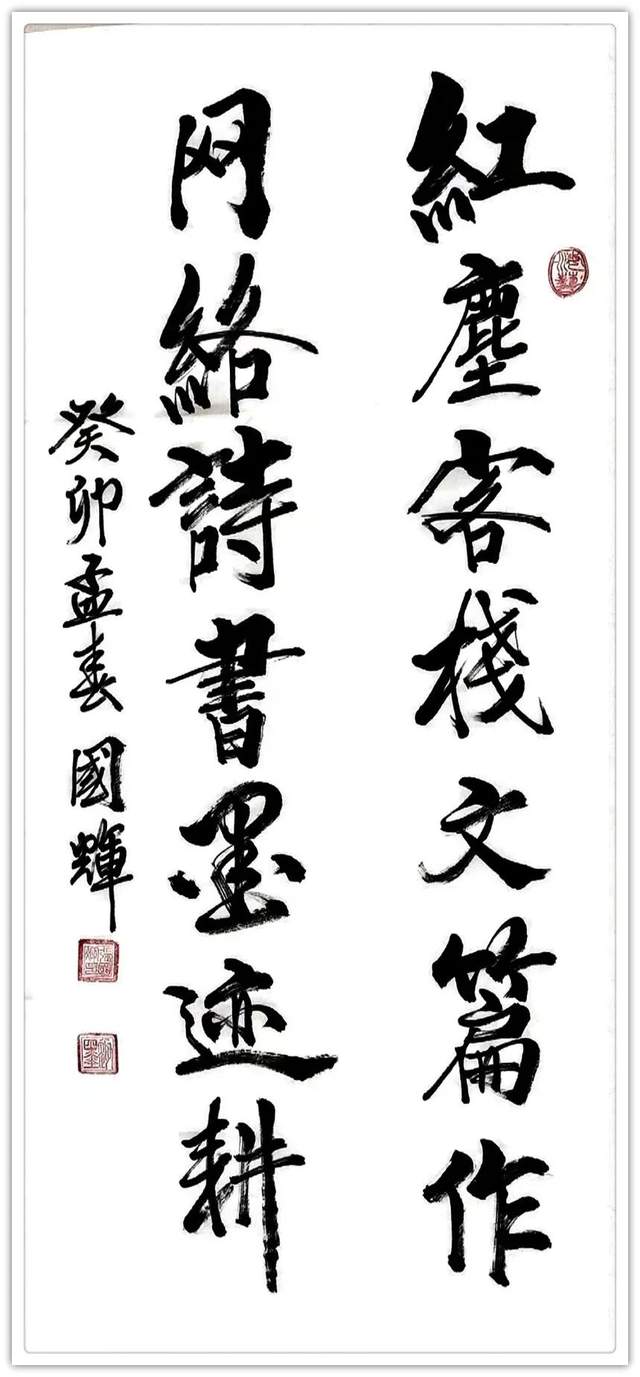 紅塵客栈文篇作
网絡詩書墨迹耕
癸卯孟春國輝